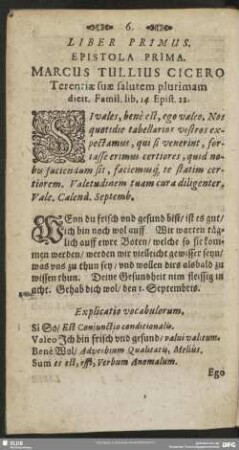 6.
LIBER PRIMUS.
EPISTOLA PRIMA.
MARCUS TULLIUS CICERO
Terentiæ suæ salutem plurimam
dicit. Famil. lib. 14. Epist. 22.
SI vales, benè est, ego valeo. Nos
quotidie tabellarios vestros ex-
pectamus, qui si venerint, for-
tasse erimus certiores, quid no-
bis faciendum sit, faciemusq́; te statim cer-
tiorem. Valetudinem tuam cura diligenter,
Vale. Calend. Septemb.
WEnn du frisch vnd gesund bist/ ist es gut/
Ich bin noch wol auff. Wir warten täg-
lich auff ewre Boten/ welche so sie kom-
men werden/ werden wir vielleicht gewisser seyn/
was vns zu thun sey/ vnd wollen dirs alsbald zu
wissen thun. Deine Gesundheit nim fleissig in
acht. Gehab dich wol/ den 1. Septembris.
Explicatio vocabulorum.
Si So/ Est Conjunctio conditionalis.
Valeo Ich bin frisch vnd gesund/ valui valitum.
Benè Wol/ Adverbium Qualitatis, Melius.
Sum es est, esse, Verbum Anomalum.
Ego
SLUB
DFG